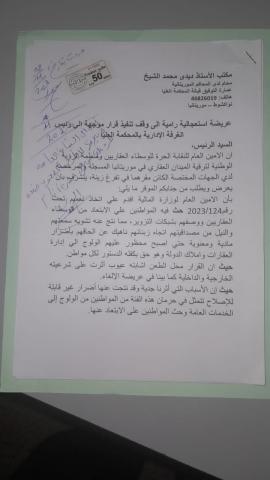 مكتب الأستاذ ديدي محمد الشيخ
محام لدى المحاكم الموريتانية
عمارة التوفيق قبالة المحكمة العليا
هاتف: 46826019
نواكشوط – موريتانيا
50
عريضة استعجالية رامية إلى وقف تنفيذ قرار موجهة إلى رئيس
الغرفة الإدارية بالمحكمة العليا
السيد الرئيس،
إن الأمين العام للنقابة الحرة للوسطاء العقاريين
الوطنية لترقية الميدان العقاري في موريتانيا المسجلة
لدى الجهات المختصة الكائن مقرهما في تفرغ زينة، يتشرف بأن
يعرض ويطلب من جنابكم الموقر ما يلي:
بأن الأمين العام لوزارة المالية أقدم على اتخاذ تعميم تحت
رقم 2023/124 حث فيه المواطنين على الابتعاد عن الوسطاء
العقاريين ووصفهم بشبكات التزوير، مما نتج عنه تشويه سمعتهم
والنيل من مصداقيتهم اتجاه زبنائهم ناهيك عن الحاقهم بأضرار
مادية ومعنوية حتى أصبح محظور عليهم الولوج إلى إدارة
العقارات وأملاك الدولة وهو حق يكفله الدستور لكل مواطن.
حيث إن القرار محل الطعن اشابته عيوب أثرت على شرعيته
الخارجية والداخلية كما بينا في عريضة الإلغاء.
حيث إن الأسباب التي أثرنا جدية وقد نتجت عنها أضرار غير قابلة
للإصلاح تتمثل في حرمان هذه الفئة من المواطنين من الولوج إلى
الخدمات العامة وحث المواطنين على الابتعاد عنها.